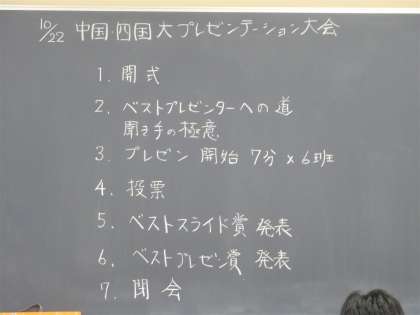 10/22 中国・四国大プレゼンテーション大会
1. 開式
2. ベストプレゼンターへの道
聞き手の極意
3. プレゼン 開始 7分×6班
4. 投票
5. ベストスライド賞 発表
6. ベストプレゼン賞 発表
7. 閉会